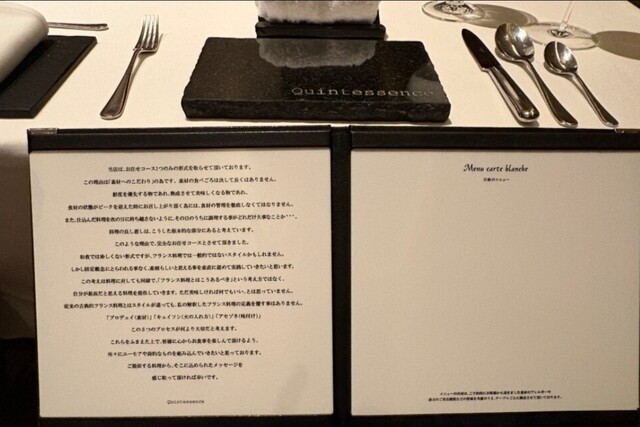 Quintessence
当店は、お任せコース1つのみの形式を取らせて頂いております。
この理由は「素材へのこだわり」の為です。素材の食べごろは決して長くはありません。
鮮度を優先する物であれ、熟成させて美味しくなる物であれ、
食材の状態がピークを迎えた時にお召し上がり頂く為には、食材の管理を徹底しなくてはなりません。
また、仕込んだ料理を次の日に持ち越さないように、その日のうちに調理する事がどれだけ大事なことか・・・。
料理の良し悪しは、こうした根本的な部分にあると考えています。
このような理由で、完全なお任せコースとさせて頂きました。
和食では珍しくない形式ですが、フランス料理では一般的ではないスタイルかもしれません。
しかし固定概念にとらわれる事なく、素晴らしいと思える事を素直に認めて実践していきたいと思います。
この考えは料理に対しても同様で、「フランス料理とはこうあるべき」という考え方ではなく、
自分が最高だと思える料理を提供していきます。ただ美味しければ何でもいい、とは思っていません。
従来の古典的フランス料理とはスタイルが違っても、私の解釈したフランス料理の定義を覆す事はありません。
「プロデュイ(素材)」「キュイソン(火の入れ方)」「アセゾネ(味付け)」
この3つのプロセスが何より大切だと考えます。
これらをふまえた上で、皆様に心からお食事を楽しんで頂けるよう、
時々にユーモアや詩的なものを組み込んでいきたいと思っております。
ご提供する料理から、そこに込められたメッセージを
感じ取って頂ければ幸いです。
Quintessence
Menu carte blanche
白紙のメニュー